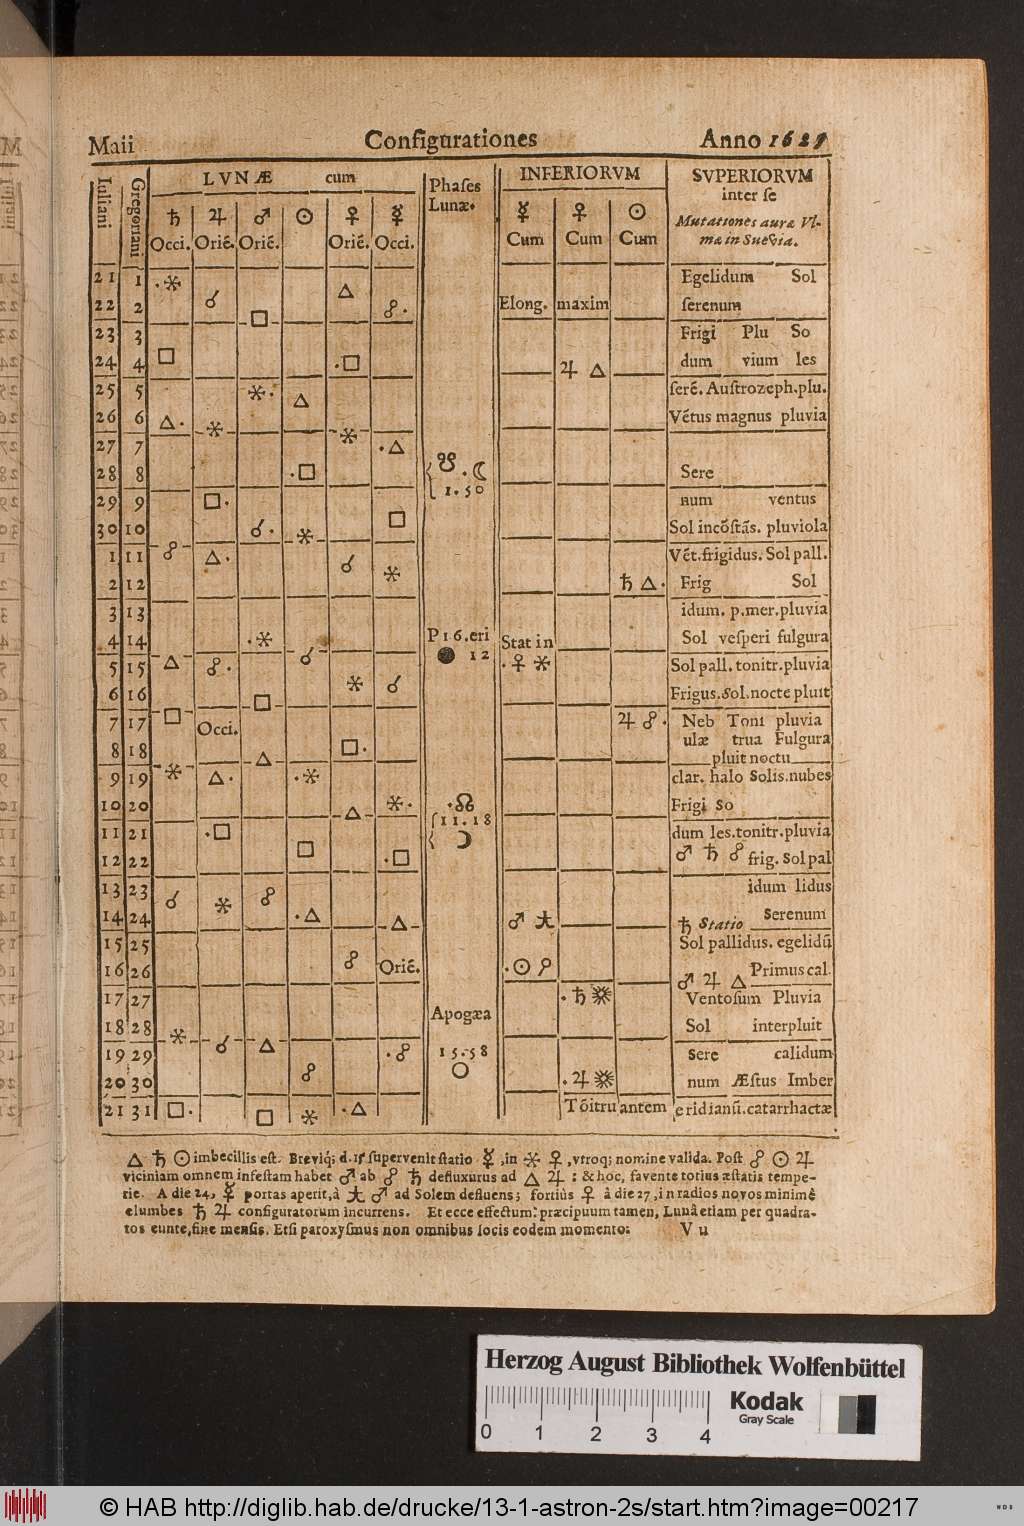 Maii Configurationes Anno 1627
Iuliani Gregoriani LVNÆ cum Phases Lunæ. INFERIORVM SVPERIORVM
inter se
♄ ♃ ♂ ☉ ♀ ☿ ☿ ♀ ☉ Mutationes auræ Vl-
Occi. Oriē. Oriē. Oriē. Occi. Cum Cum Cum mæ in Suevia.
21 1 .⚹ Egelidum Sol
22 2 ☌ □ △ ☍. Elong. maxim serenum
23 3 Frigi Plu So
24 4 □ .□ ♃ △ dum vium les
25 5 ⚹. △ serē. Austrozeph.plu.
26 6 △. ⚹ ⚹ Vētus magnus pluvia
27 7 .△
28 8 .□ ☋ . ☾ Sere
29 9 □. 1.50 num ventus
30 10 ☌. ⚹ □ Sol incōstās. pluviola
1 11 ☍ △. ☌ Vēt.frigidus. Sol pall.
2 12 ⚹ ♄ △. Frig Sol
3 13 idum. p.mer.pluvia
4 14 .⚹ P16.eri Stat in Sol vesperi fulgura
5 15 △ ☍. ☌ ● 12 .♀ ⚹ Sol pall. tonitr.pluvia
6 16 □ ⚹ ☌ Frigus.Sol.nocte pluit
7 17 □ Occi. ♃ ☍. Neb Toni pluvia
8 18 △ □. ulæ trua Fulgura
pluit noctu
9 19 ⚹ △. .⚹ clar. halo Solis.nubes
10 20 △ ⚹. .☊ Frigi so
11 21 .□ 11.18 dum les.tonitr.pluvia
12 22 □ .□ ☽ ♂ ♄ ☍ frig. Sol pal
13 23 ☌ ⚹ ☍ idum lidus
14 24 .△ △ ♂ ♄ Statio Serenum
15 25 Sol pallidus. egelidū
16 26 ☍ Oriē. .☉ ♂ ♃ △ Primus cal.
17 27 .♄ Ventosum Pluvia
18 28 ⚹ ☌ △ Apogæa Sol interpluit
19 29 .☍ 15.58 Sere calidum
20 30 ☍ ○ .♃ num Æstus Imber
21 31 □. □ ⚹ .△ Tōitru antem eridianū.catarrhactæ
△ ♄ ☉ imbecillis est. Breviq; d.15 supervenit statio ☿ , in ⚹ ♀ , vtroq; nomine valida. Post ☍ ☉ ♃
viciniam omnem infestam habet ♂ ab ☍ ♄ defluxurus ad △ ♃ : & hoc, favente totius æstatis tempe-
rie. A die 24, ☿ portas aperit, à ♂ ad Solem defluens; fortius ♀ à die 27, in radios novos minimè
elumbes ♄ ♃ configuratorum incurrens. Et ecce effectum: præcipuum tamen, Lunâ etiam per quadra-
tos eunte, fine mensis. Etsi paroxysmus non omnibus locis eodem momento: V u
Herzog August Bibliothek Wolfenbüttel
Kodak
Gray Scale
0 1 2 3 4
© HAB http://diglib.hab.de/drucke/13-1-astron-2s/start.htm?image=00217